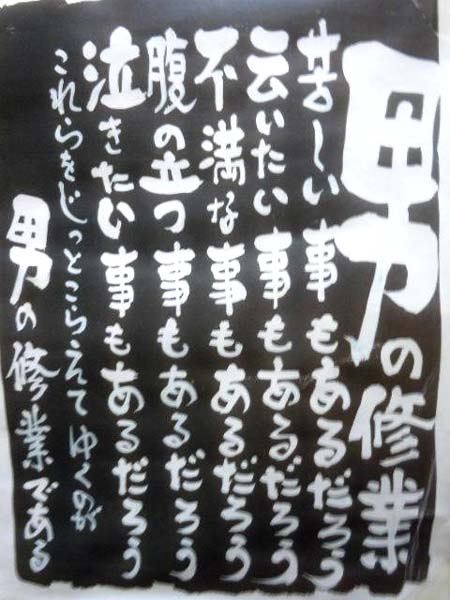 男の修業
苦しい事もあるだろう
云いたい事もあるだろう
不満な事もあるだろう
腹の立つ事もあるだろう
泣きたい事もあるだろう
これらをじっとこらえてゆくのが
男の修業である